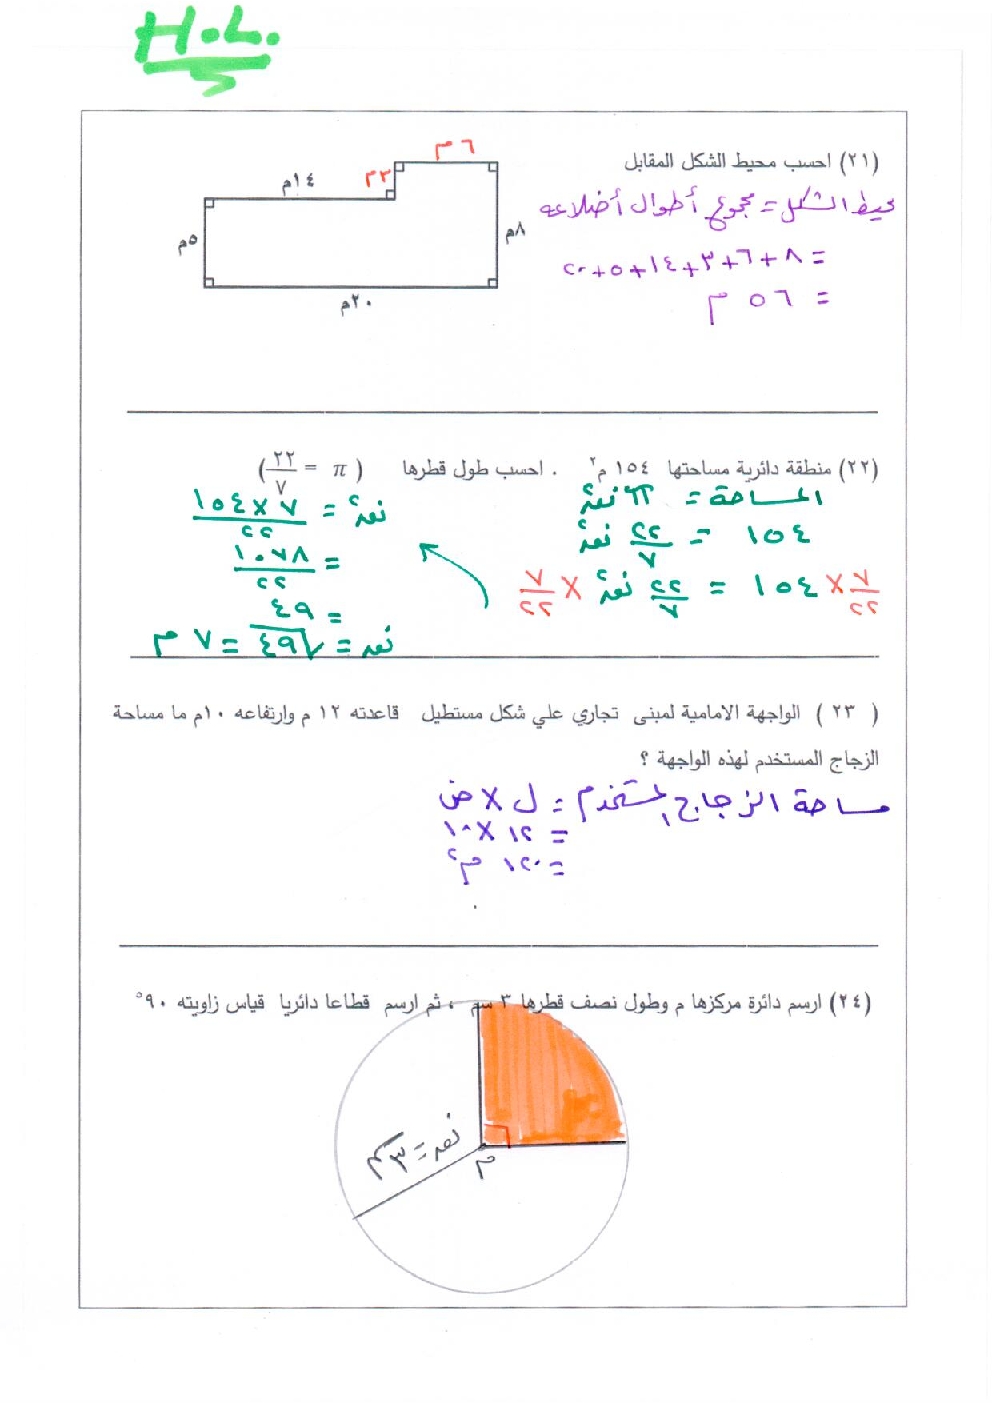 H.L.
(٢١) احسب محيط الشكل المقابل
٦ م
٣ م
١٤م
٥م
٨م
٢٠م
محيط الشكل = مجموع أطوال أضلاعه
= ٨+٦+٣+١٤+٥+٢٠
= ٥٦ م
(٢٢) منطقة دائرية مساحتها ١٥٤ م٢ . احسب طول قطرها ( π = ٢٢/٧)
المساحة = π نق٢
١٥٤ = ٢٢/٧ نق٢
٧/٢٢ × ١٥٤ = ٢٢/٧ نق٢ × ٧/٢٢
نق٢ = ٧ × ١٥٤ / ٢٢
= ١٠٧٨ / ٢٢
= ٤٩
نق = √٤٩ = ٧ م
( ٢٣ ) الواجهة الامامية لمبنى تجاري علي شكل مستطيل قاعدته ١٢ م وارتفاعه ١٠م ما مساحة
الزجاج المستخدم لهذه الواجهة ؟
مساحة الزجاج المستخدم = ل × ض
= ١٢ × ١٠
= ١٢٠ م٢
(٢٤) ارسم دائرة مركزها م وطول نصف قطرها ٣ سم ، ثم ارسم قطاعا دائريا قياس زاويته ٩٠°
نق = ٣ سم
م